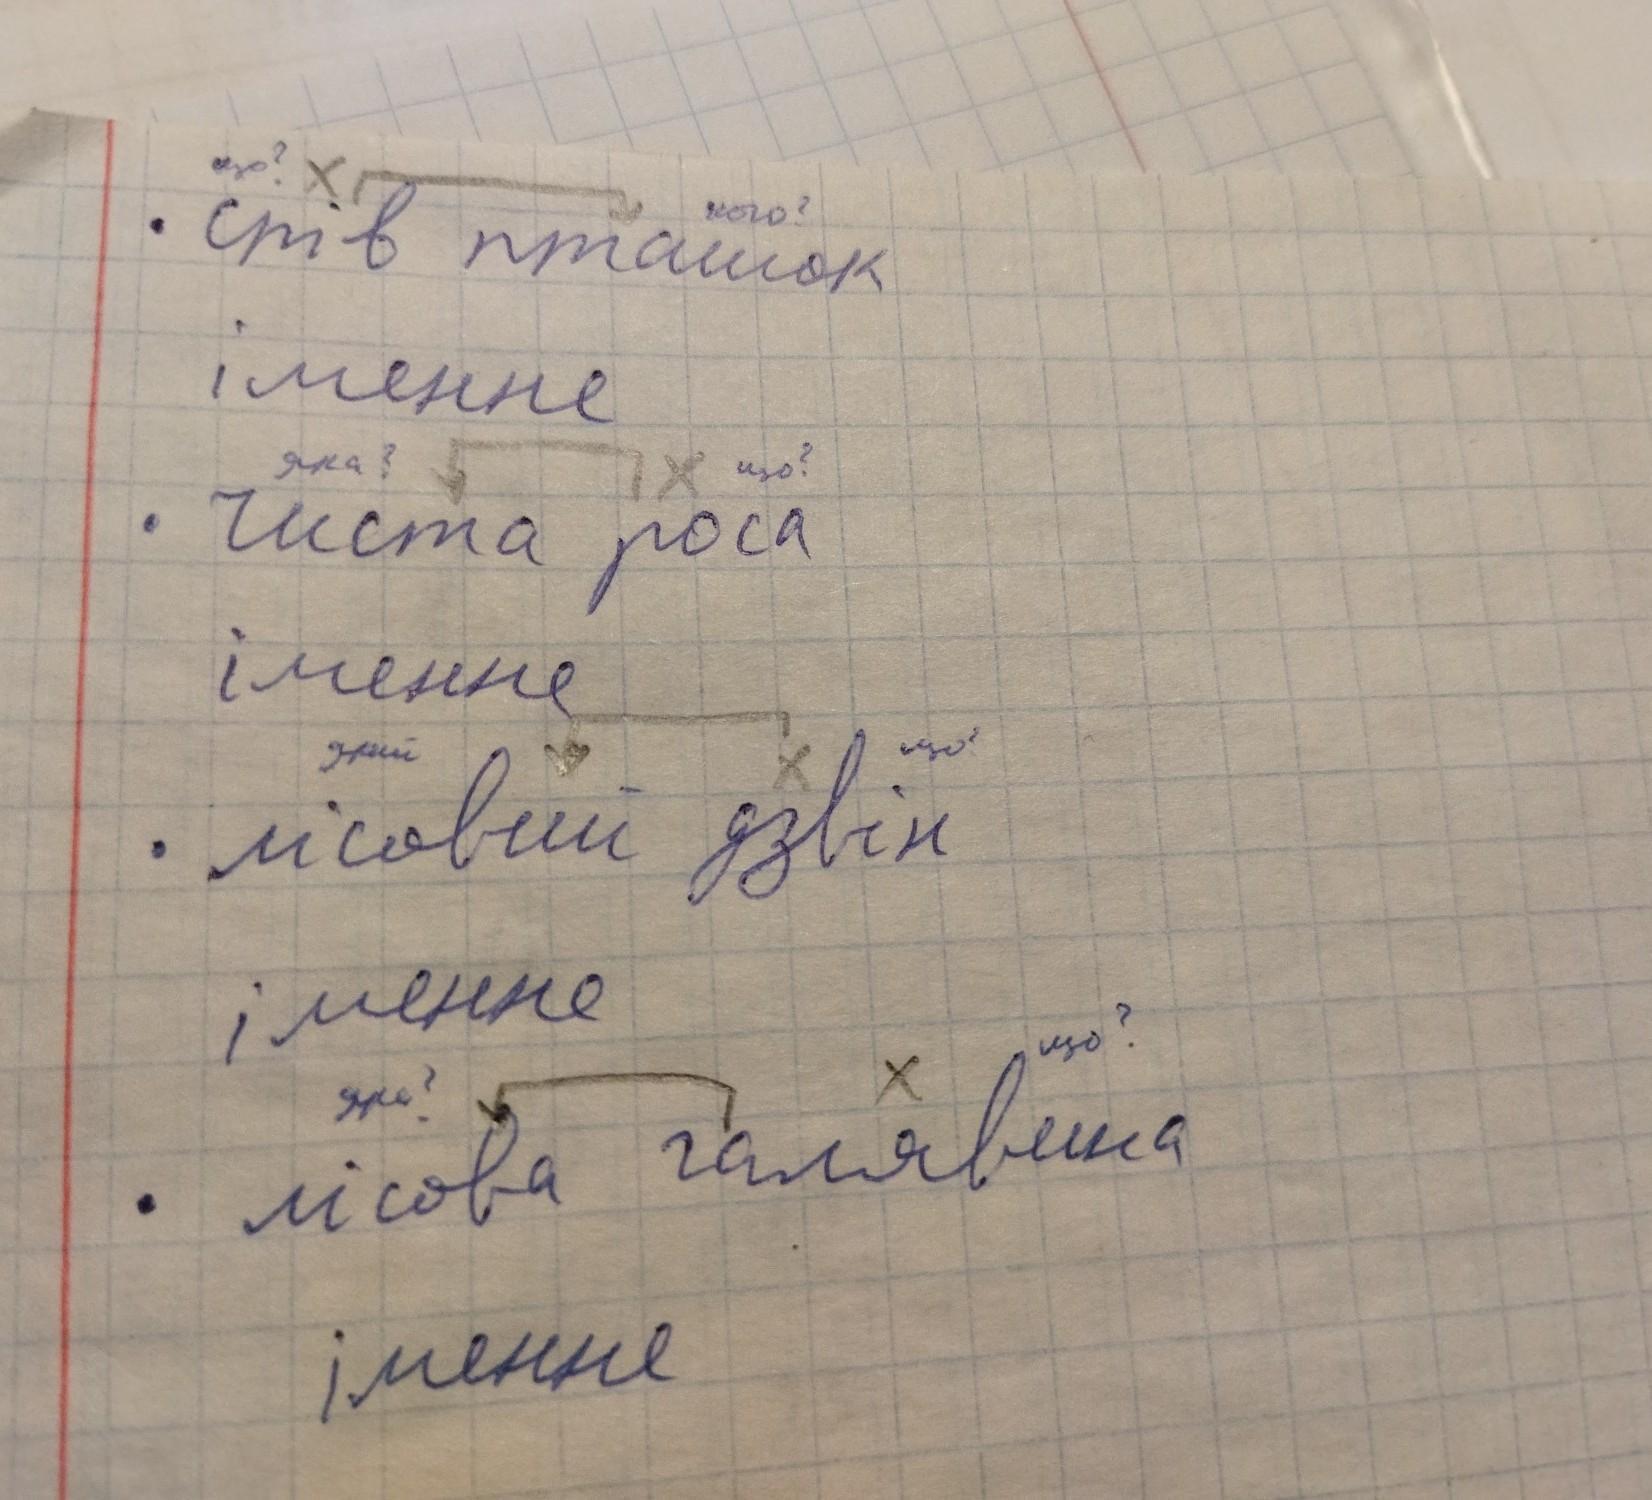 що? х
• спів пташок кого?
іменне
яка? х що?
• чиста роса
іменне
який х що?
• лісовий дзвін
іменне
яка? х що?
• лісова галявина
іменне